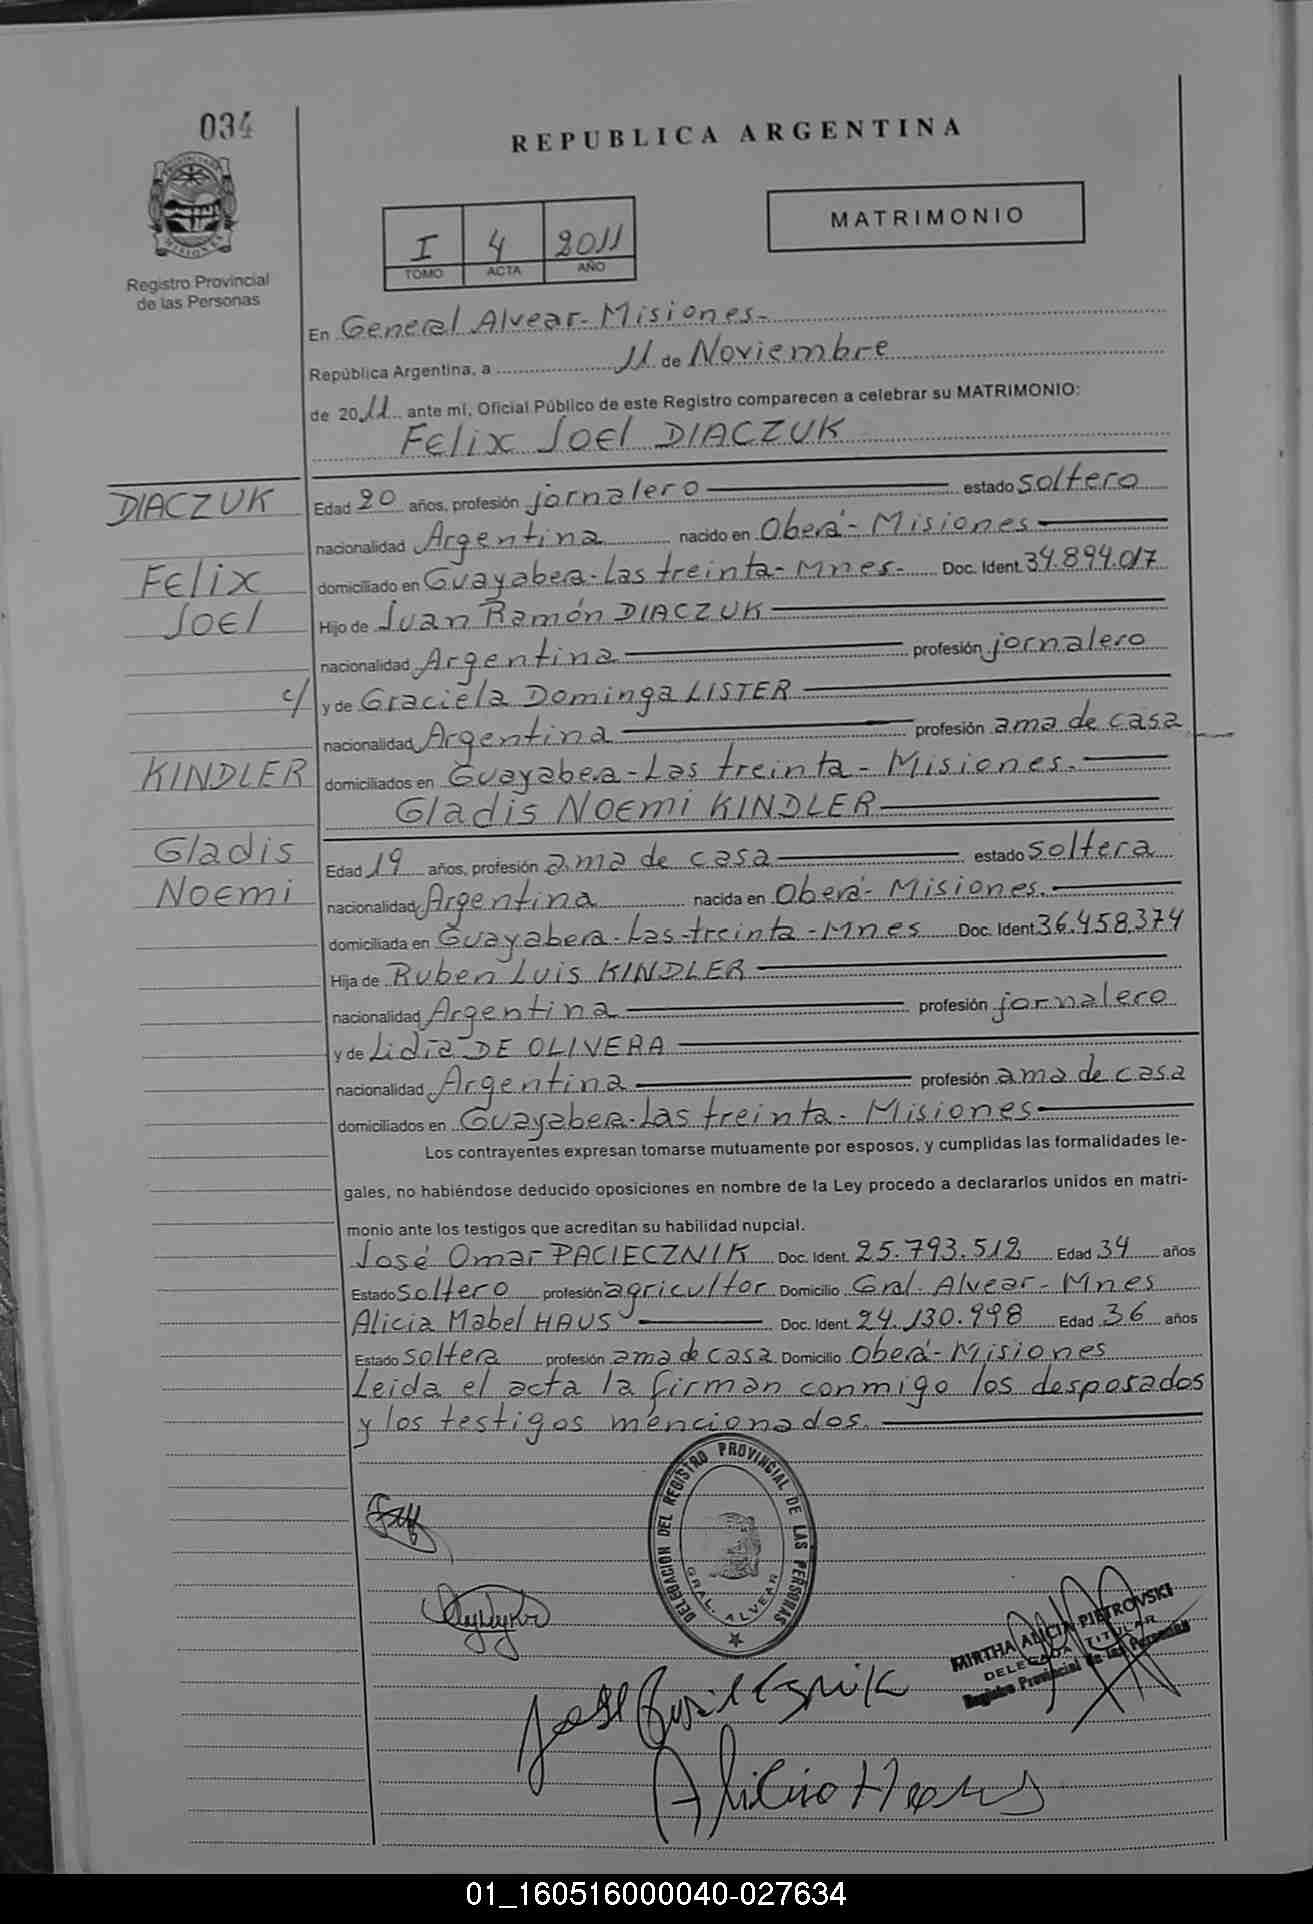 034
REPUBLICA ARGENTINA
MATRIMONIO
I 4 2011
TOMO ACTA AÑO
MISIONES
Registro Provincial
de las Personas
En General Alvear - Misiones.-
República Argentina, a 11 de Noviembre
de 2011 ante mí, Oficial Público de este Registro comparecen a celebrar su MATRIMONIO:
FELIX JOEL DIACZUK
DIACZUK
FELIX
JOEL
c/
KINDLER
Gladis
NOEMI
Edad 20 años, profesión jornalero estado soltero
nacionalidad Argentina nacido en Oberá - Misiones
domiciliado en Guayabera - Las treinta - Mnes - Doc. Ident. 34.894.017
Hijo de Juan Ramón DIACZUK
nacionalidad Argentina profesión jornalero
y de Graciela Dominga LISTER
nacionalidad Argentina profesión ama de casa
domiciliados en Guayabera - Las treinta - Misiones.
Gladis NOEMI KINDLER
Edad 19 años, profesión ama de casa estado soltera
nacionalidad Argentina nacida en Oberá - Misiones.
domiciliada en Guayabera - Las treinta - Mnes Doc. Ident. 36.458.374
Hija de Ruben Luis KINDLER
nacionalidad Argentina profesión jornalero
y de Lidia DE OLIVERA
nacionalidad Argentina profesión ama de casa
domiciliados en Guayabera - Las treinta - Misiones
Los contrayentes expresan tomarse mutuamente por esposos, y cumplidas las formalidades le-
gales, no habiéndose deducido oposiciones en nombre de la Ley procedo a declararlos unidos en matri-
monio ante los testigos que acreditan su habilidad nupcial.
José Omar PACIECZNIK Doc. Ident. 25.793.512 Edad 34 años
Estado soltero profesión agricultor Domicilio Gral. Alvear - Mnes
Alicia Mabel HAUS Doc. Ident. 24.130.998 Edad 36 años
Estado soltera profesión ama de casa Domicilio Oberá - Misiones
Leida el acta la firman conmigo los desposados
y los testigos mencionados.
DELEGACION DEL REGISTRO PROVINCIAL DE LAS PERSONAS
GRAL. ALVEAR
MIRTHA ALICIA PIETROVSKI
DELEGADA TITULAR
Registro Provincial de las Personas
01_160516000040-027634